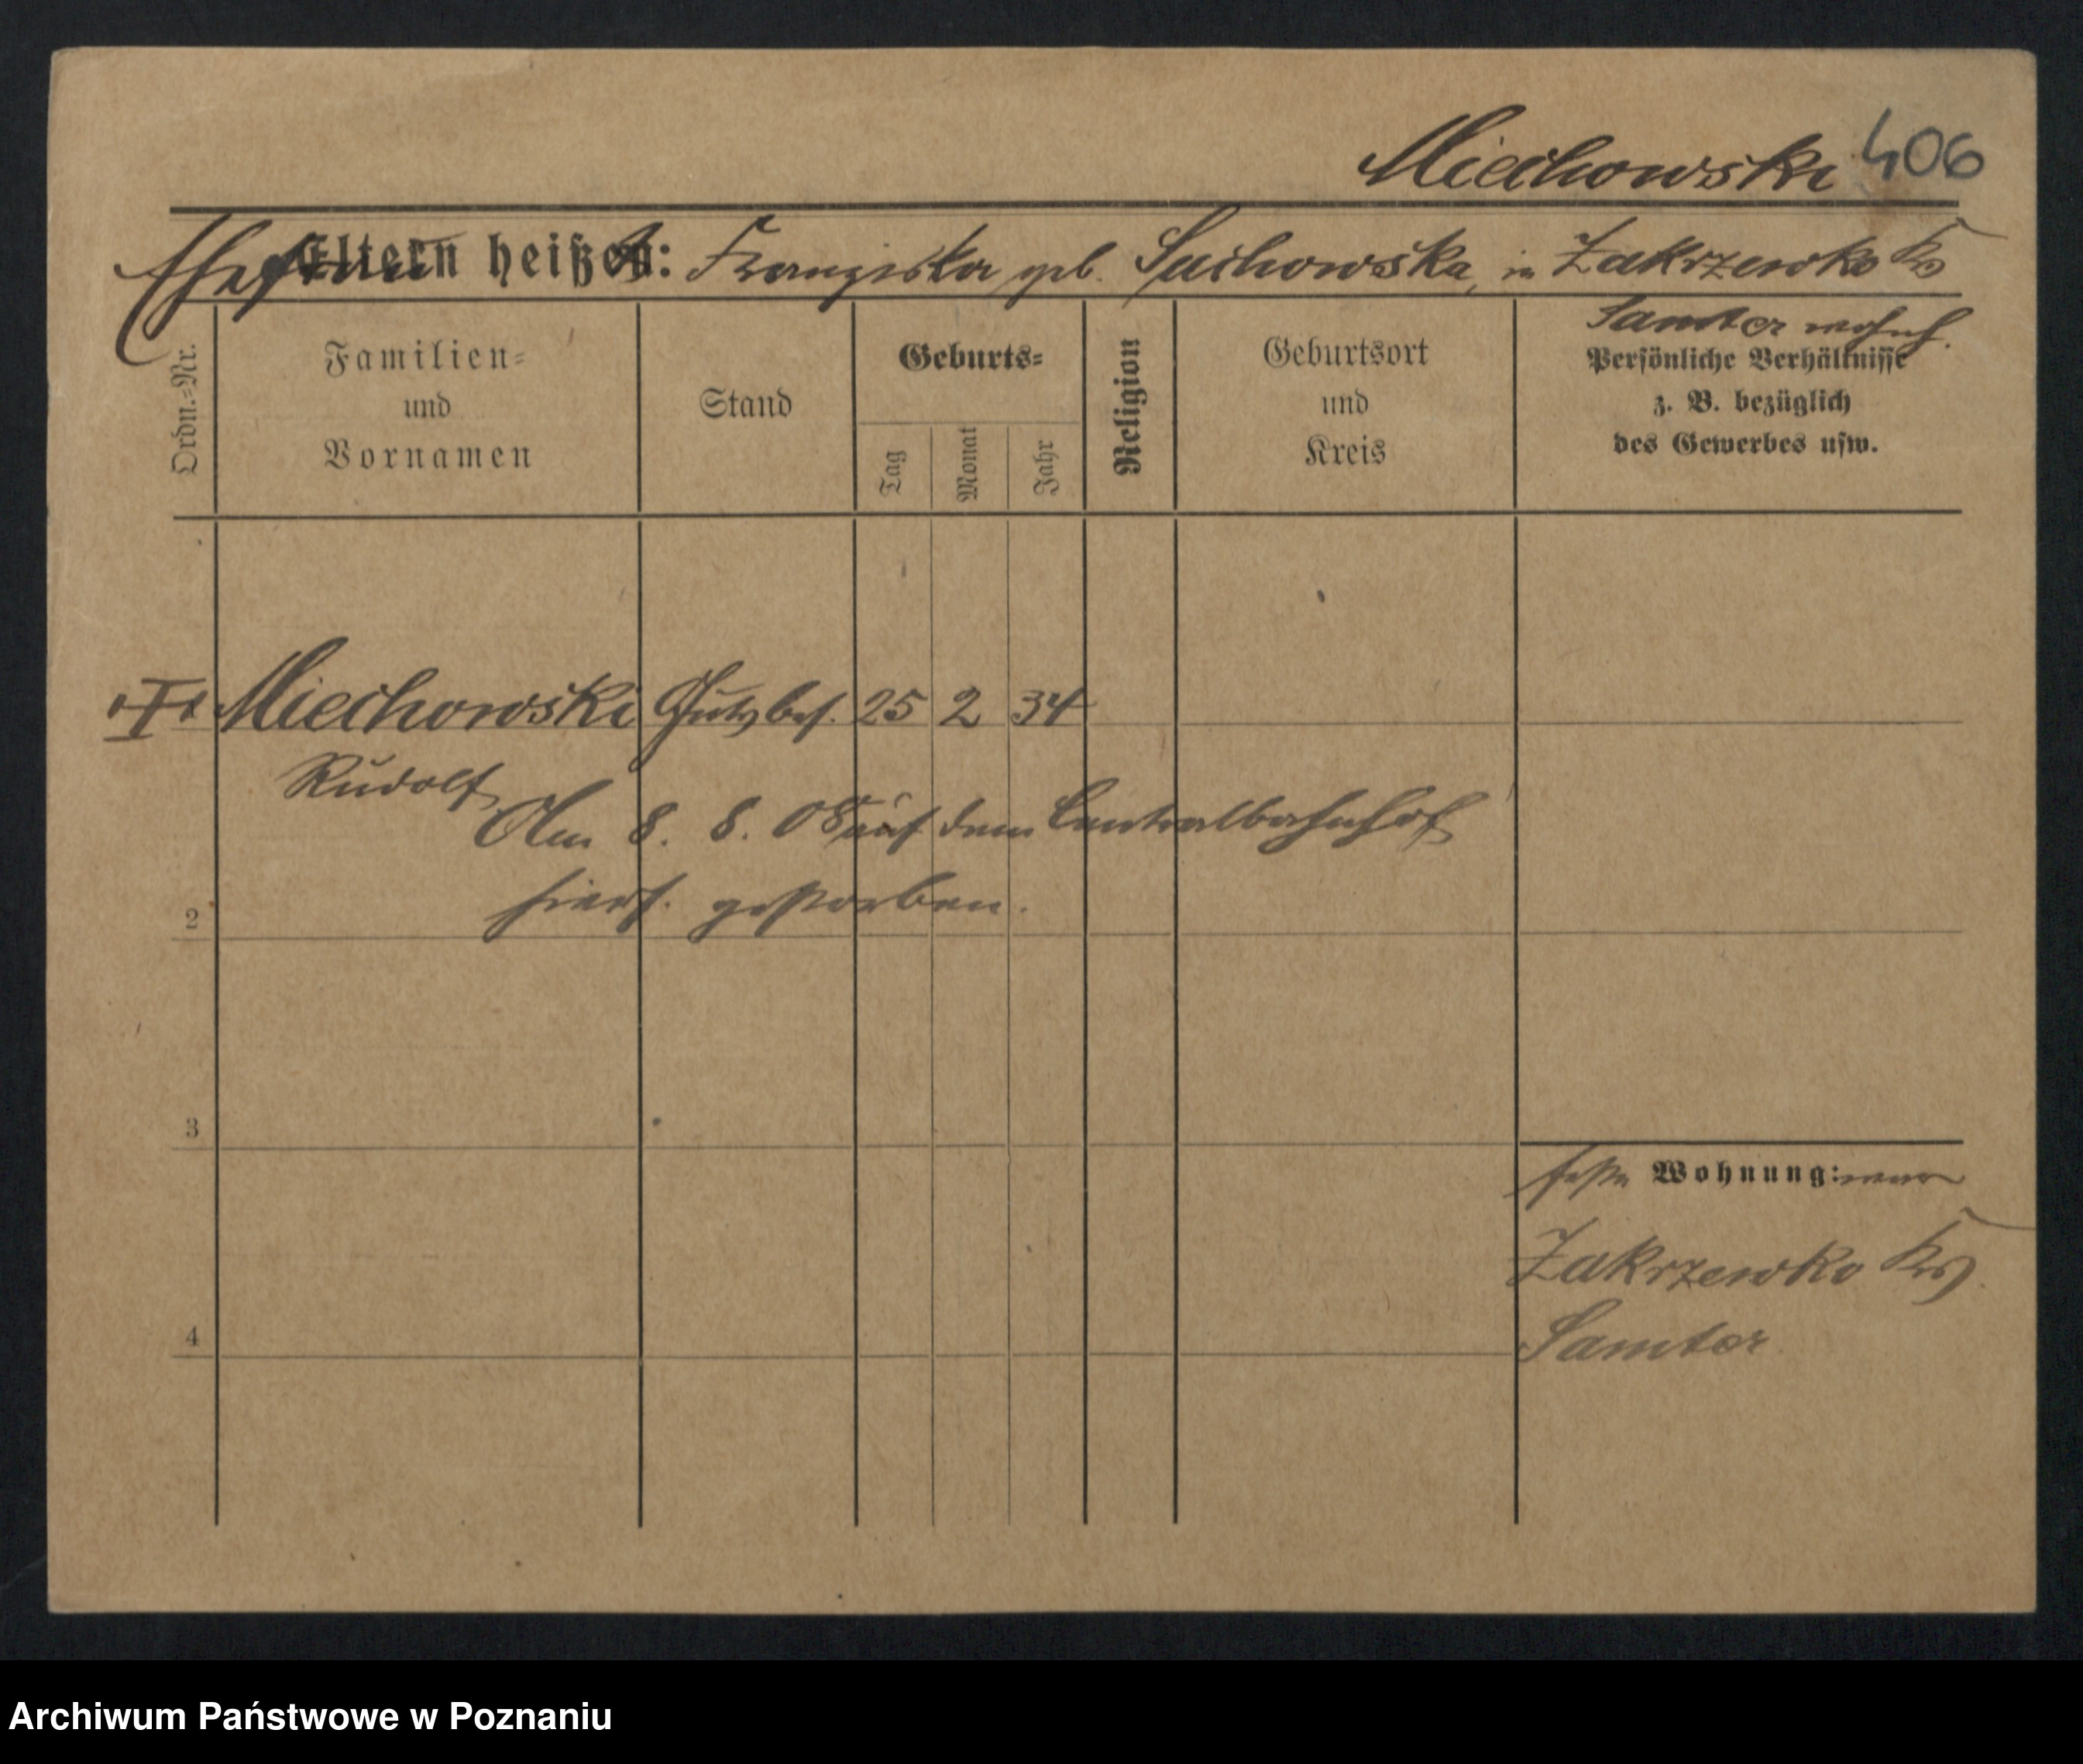 Miechowski 406
Ehefrau Eltern heißen: Franziska geb. Suchowska, in Zakrzewko Krs
Samter wohnh.
Ordn.=Nr.
Familien=
und
Vornamen
Stand
Geburts=
Tag
Monat
Jahr
Religion
Geburtsort
und
Kreis
Persönliche Verhältnisse
z. B. bezüglich
des Gewerbes usw.
Miechowski Gutsbes. 25 2 34
Rudolf
Am 8. 8. 08 auf dem Centralbahnhof
hiers. gestorben.
2
3
4
feste Wohnung: war
Zakrzewko Krs.
Samter
Archiwum Państwowe w Poznaniu